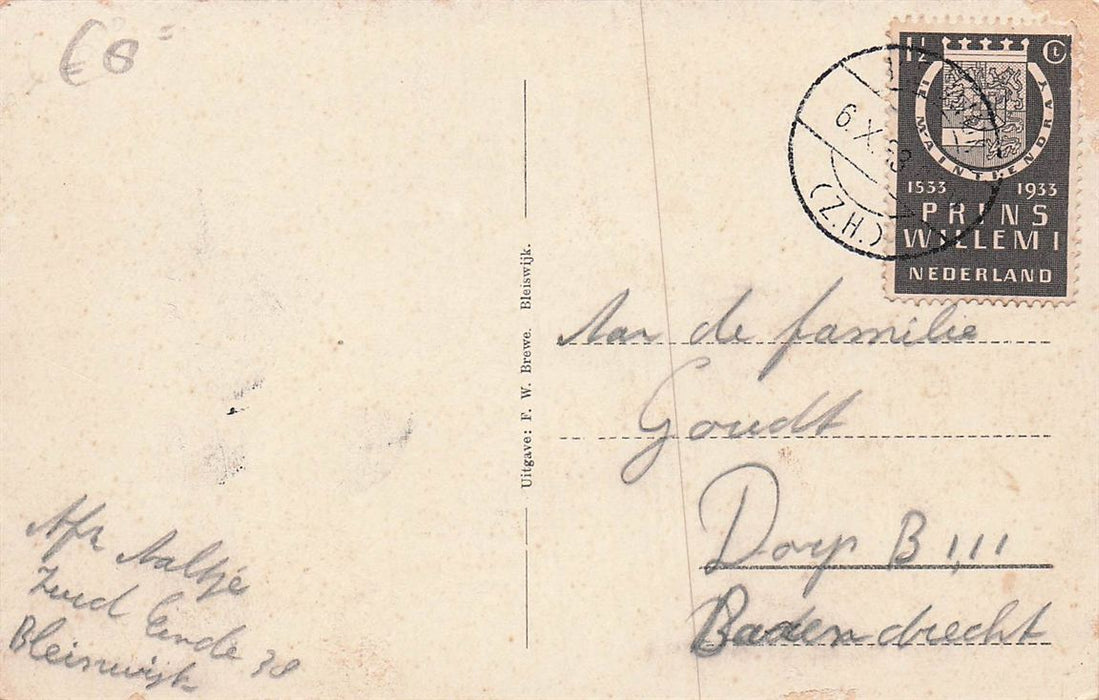 €6
1½ ct
JE MAINTIENDRAY
1533 1933
PRINS
WILLEM I
NEDERLAND
6.X.33
(Z.H.)
Uitgave: F. W. Brewe. Bleiswijk.
Aan de familie
Goudt
Dorp B 111
Barendrecht
Afz Aaltje
Zuid Einde 38
Bleiswijk